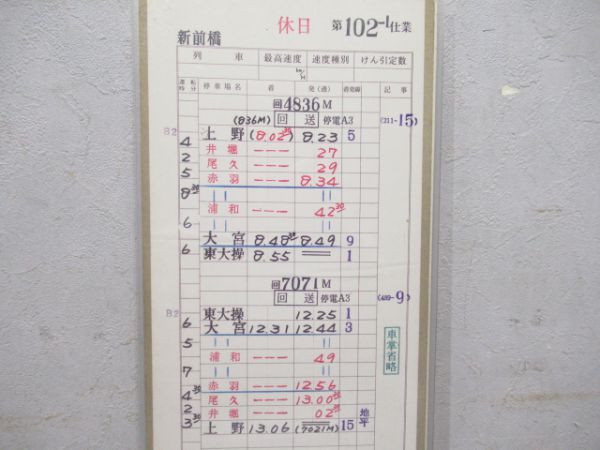 新前橋 休日 第102-1仕業
列車 最高速度 速度種別 けん引定数
km/H
運転時分 停車場名 着 発(通) 着発線 記事
回4836M
(836M) 回送 停電A3 (211-15)
B2 上野 (8.02 35) 8.23 5
4 井堀 ーーー 27
2 尾久 ーーー 29
5 赤羽 ーーー 8.34
8 30 〃 〃
浦和 ーーー 42 30
6 〃 〃
大宮 8.48 8.49 9
6 東大操 8.55 ＝ 1
回7071M
回送 停電A3 (409-9)
B2 東大操 12.25 1
6 大宮 12.31 12.44 3
5 〃 〃 車掌省略
浦和 ーーー 49
7 〃 〃
赤羽 ーーー 12.56
4 30 尾久 ーーー 13.00 30
2 井堀 ーーー 02 30
3 30 上野 13.06 (7021M) 15 地平